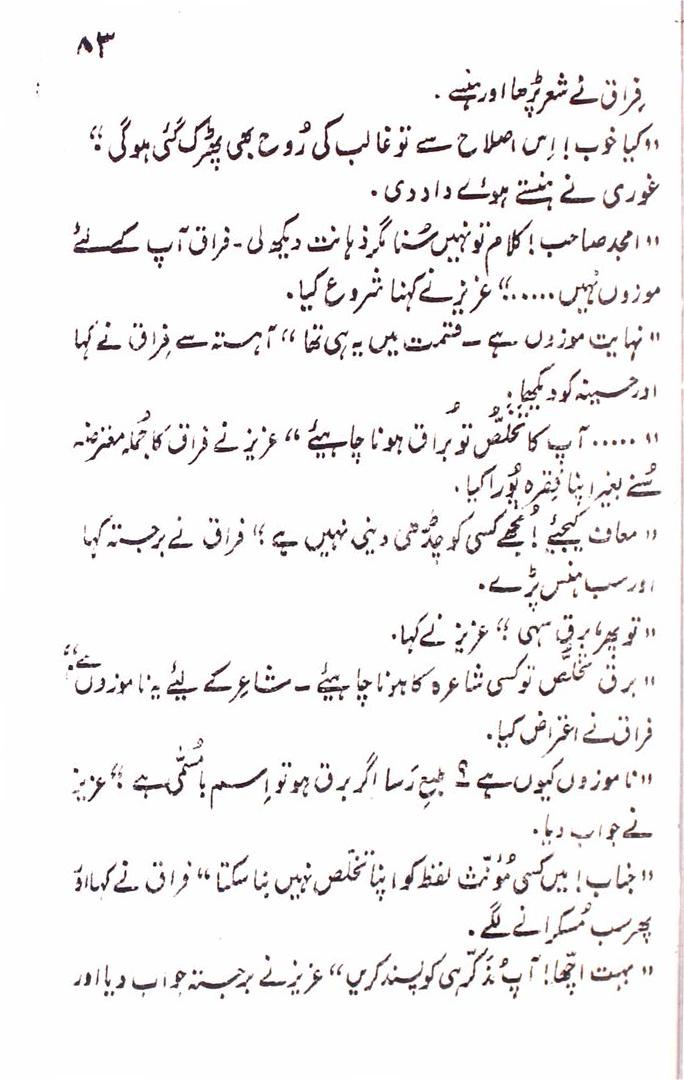 ۸۳
فِراق نے شعر پڑھا اور ہنسے ۔
"کیا خوب! اِس اصلاح سے تو غالب کی رُوح بھی پھڑک گئی ہوگی"
غوری نے ہنستے ہوئے داد دی ۔
"امجد صاحب! کلام تو نہیں سُنا مگر ذہانت دیکھ لی - فراق آپ کے لئے
موزوں نہیں ....." عزیز نے کہنا شروع کیا ۔
"نہایت موزوں ہے - قسمت میں یہ ہی تھا" آہستہ سے فِراق نے کہا
اور حسینہ کو دیکھا ۔
"..... آپ کا تخلّص تو بُراق ہونا چاہیئے" عزیز نے فراق کا جُملہ معترضہ
سُنے بغیر اپنا فِقرہ پُورا کیا ۔
"معاف کیجئے! مُجھے کسی کو چڈھی دینی نہیں ہے" فراق نے برجستہ کہا
اور سب ہنس پڑے ۔
"تو پھر برق سہی" عزیز نے کہا ۔
"برق تخلّص تو کسی شاعرہ کا ہونا چاہیئے - شاعِر کے لیئے یہ ناموزوں ہے"
فراق نے اعتراض کیا ۔
"ناموزوں کیوں ہے؟ طبع رَسا اگر برق ہو تو اِسم بامُسمّٰی ہے" عزیز
نے جواب دیا ۔
"جناب! میں کسی مُؤنّث لفظ کو اپنا تخلّص نہیں بنا سکتا" فراق نے کہا اور
پھر سب مُسکرانے لگے ۔
"بہت اچّھا! آپ مُذکّر ہی کو پسند کریں" عزیز نے برجستہ جواب دیا اور